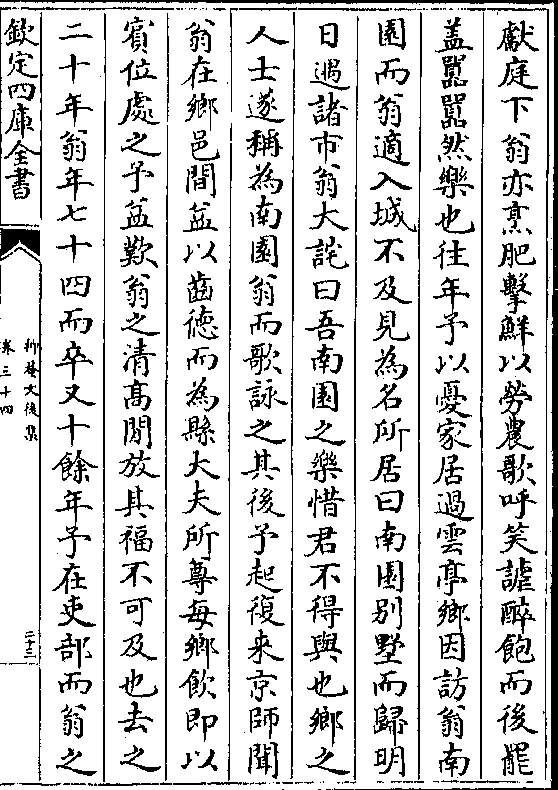 獻庭下翁亦烹肥擊鮮以勞農歌呼笑謔醉飽而後罷
蓋嚚嚚然樂也往年予以憂家居過雲亭鄉因訪翁南
園而翁適入城不及見為名所居曰南園别墅而歸明
日遇諸市翁大詫曰吾南園之樂惜君不得與也鄉之
人士遂稱為南園翁而歌詠之其後予起復来京師聞
翁在鄉邑間益以齒徳而為縣大夫所尊每鄉飲即以
賔位處之予益歎翁之清髙閒放其福不可及也去之
二十年翁年七十四而卒又十餘年予在吏部而翁之
欽定四庫全書
抑菴文後集
卷三十四
二十三